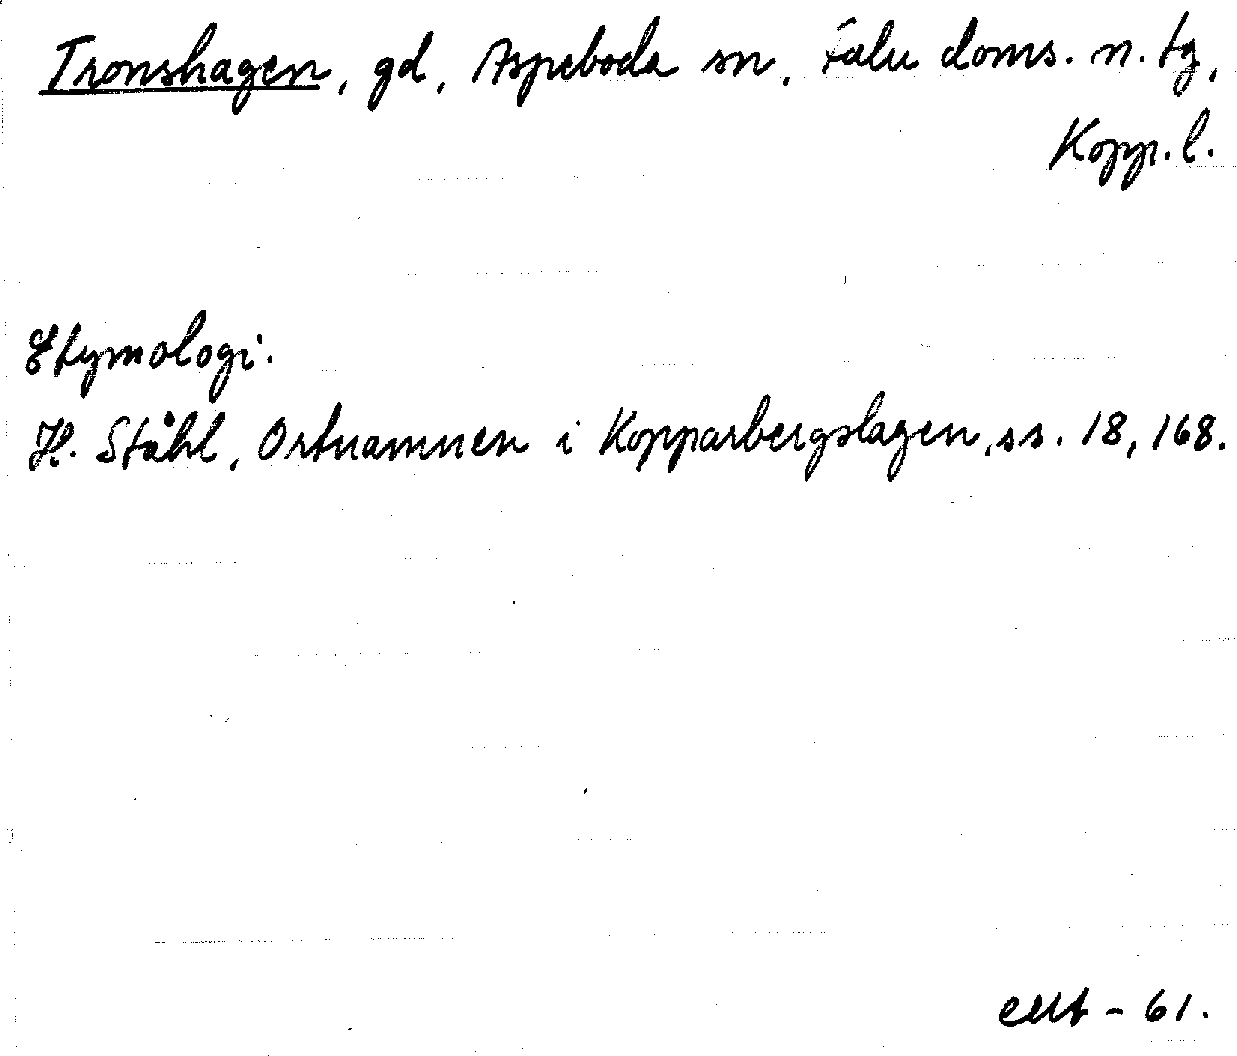 Tronshagen, gd, Aspeboda sn, Falu doms. n. tg,
Kopp. l.
Etymologi.
H. Ståhl, Ortnamnen i Kopparbergslagen, ss. 18, 168.
- 61.